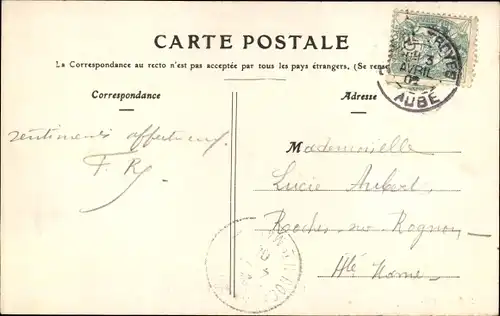 CARTE POSTALE
La Correspondance au recto n'est pas acceptée par tous les pays étrangers. (Se rense
Correspondance
Adresse
TROYES
3
AVRIL
AUBE
sentiments affectueux.
F. R
Mademoiselle
Lucie Aubert
Roches-sur-Rognon
Hte Marne